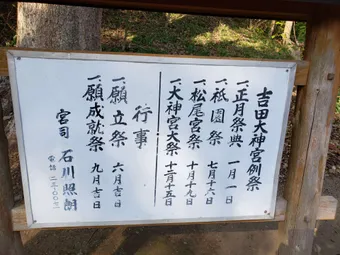 吉田大神宮例祭
一、正月祭典 一月一日
一、祇園祭 七月十六日
一、松尾宮祭 十月十九日
一、大神宮大祭 十二月十五日
行事
一、願立祭 六月吉日
一、願成就祭 九月吉日
宮司 石川照朗